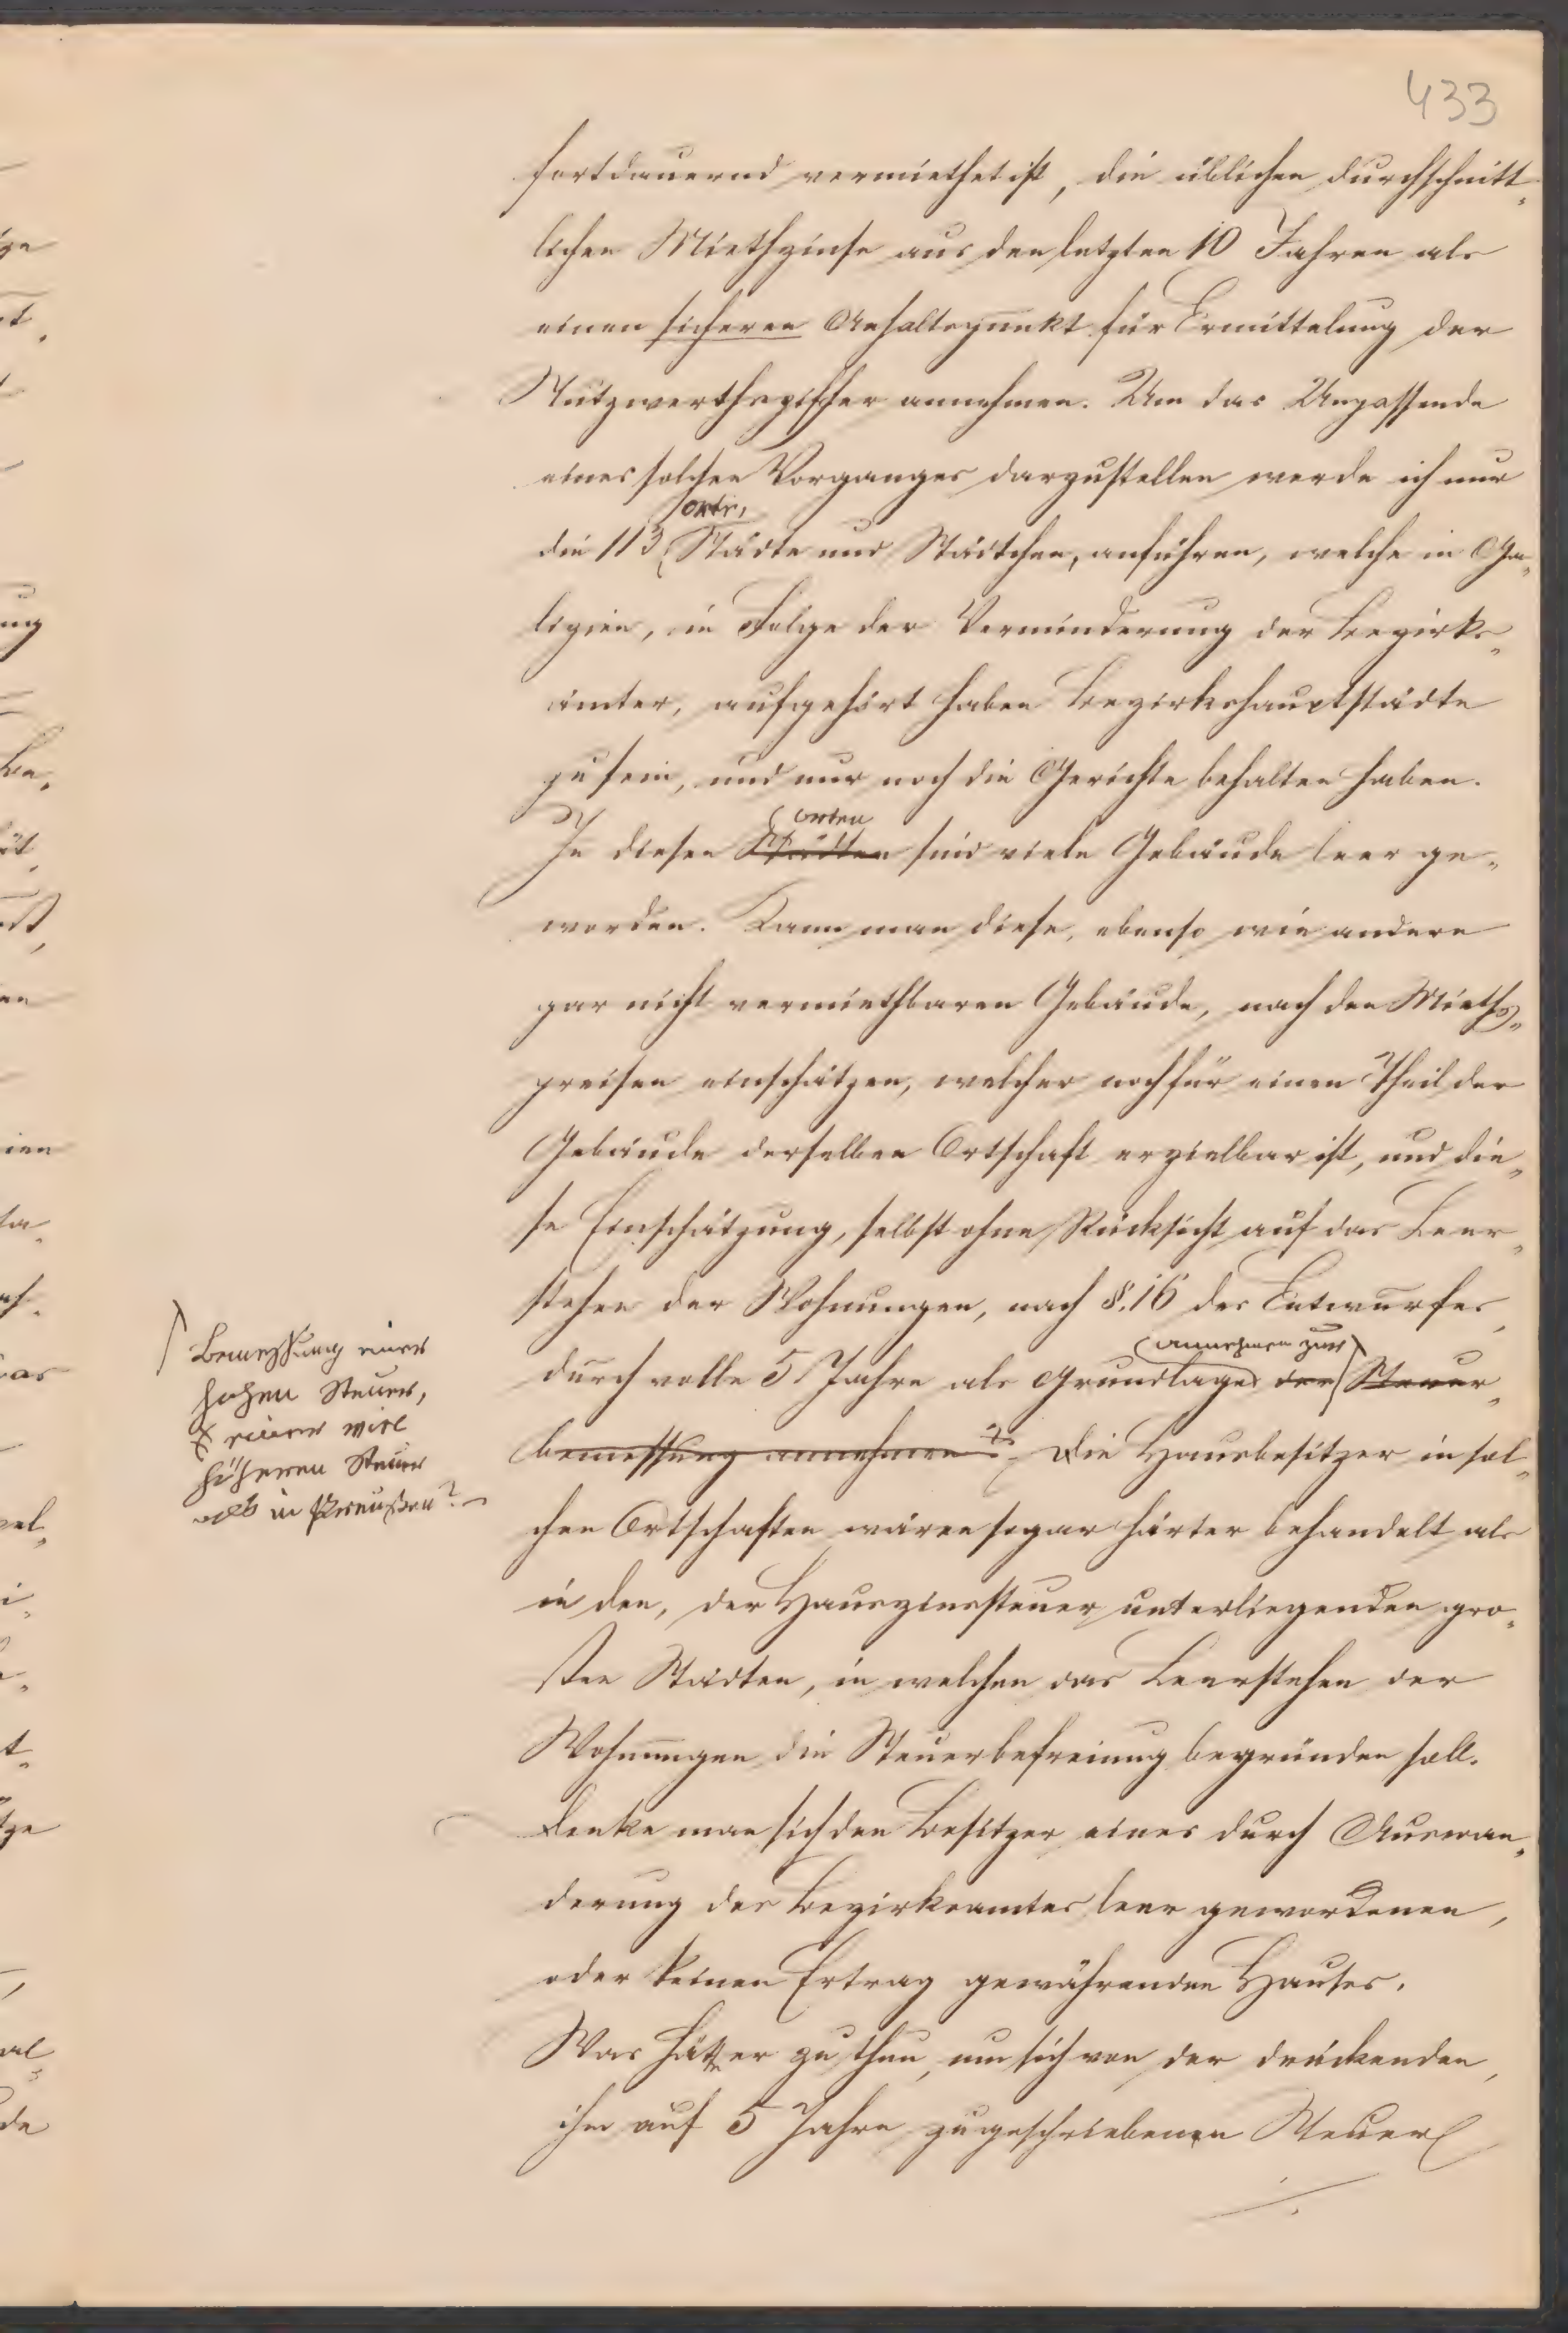 433
fortdauernd vermiethet ist, die üblichen durchschnitt-
lichen Miethzinse aus den letzten 10 Jahren als
einen sicheren Anhaltspunkt für Ermittelung der
Nutzwerthsziffer annehmen. Um das Unpassende
eines solchen Vorganges darzustellen werde ich nur
Orte,
die 113 Städte und Städtchen, anführen, welche in Ga-
lizien, in Folge der Verminderung der Bezirks-
ämter, aufgehört haben Bezirkshauptstädte
zu sein, und nur noch die Gerichte behalten haben.
Orten
In diesen Städten sind viele Gebäude leer ge-
worden. Kann man diese, ebenso wie andere
gar nicht vermiethbaren Gebäude, nach den Mieths-
preisen einschätzen, welcher noch für einen Theil der
Gebäude derselben Ortschaft erzielbar ist, und die-
se Einschätzung, selbst ohne Rücksicht auf das Leer-
stehen der Wohnungen, nach §. 16 des Entwurfes,
annehmen zur
durch volle 5 Jahre als Grundlage der Steuer-
bemessung annehmen? Die Hausbesitzer in sol-
chen Ortschaften wären sogar härter behandelt als
in den, der Hauszinssteuer unterliegenden gro-
ßen Städten, in welchen das Leerstehen der
Wohnungen die Steuerbefreiung begründen soll.
Denke man sich den Besitzer eines durch Auswan-
derung des Bezirksamtes leer gewordenen,
oder keinen Ertrag gewährenden Hauses.
Was hätte er zu thun, um sich von der drückenden,
ihm auf 5 Jahre zugeschriebenen Steuer
Bemessung einer
hohen Steuer,
einer viel
höheren Steuer
als in Preußen?